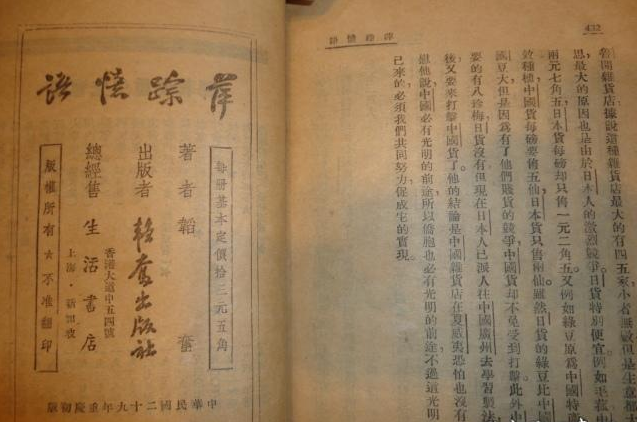 432
萍蹤憶語
開雜貨店據說這種雜貨店最大的有四五家,小者無數,但是生意都
思,最大的原因也是由於日本人的激烈競爭。日貨特別便宜,例如
兩元七角五,日本貨每磅却只售一元二角五。又例如綠豆原爲中國特
效種植,中國貨每磅要售五仙,日本貨只售兩仙。雖然日貨的綠豆比中國
國豆大,但是因爲有了他們賤貨的競爭,中國貨却不免受到打擊。此外中
要的有八珍梅,日貨沒有,但現在日本人已派人往中國廣州去學習製法,
後又要來打擊中國貨了。他的結論是中國雜貨店在夏威夷恐怕也沒有
但他說,中國必有光明的前途,所以僑胞也必有光明的前途,不過這光明
己來的,必須我們共同努力,促成它的實現。
萍踪憶語
每冊基本定價拾三元五角
著者 韜奮
出版者 韜奮出版社
總經售 生活書店
香港大道中五四號
上海·新加坡
版權所有★不准翻印
中華民國二十九年重慶初版